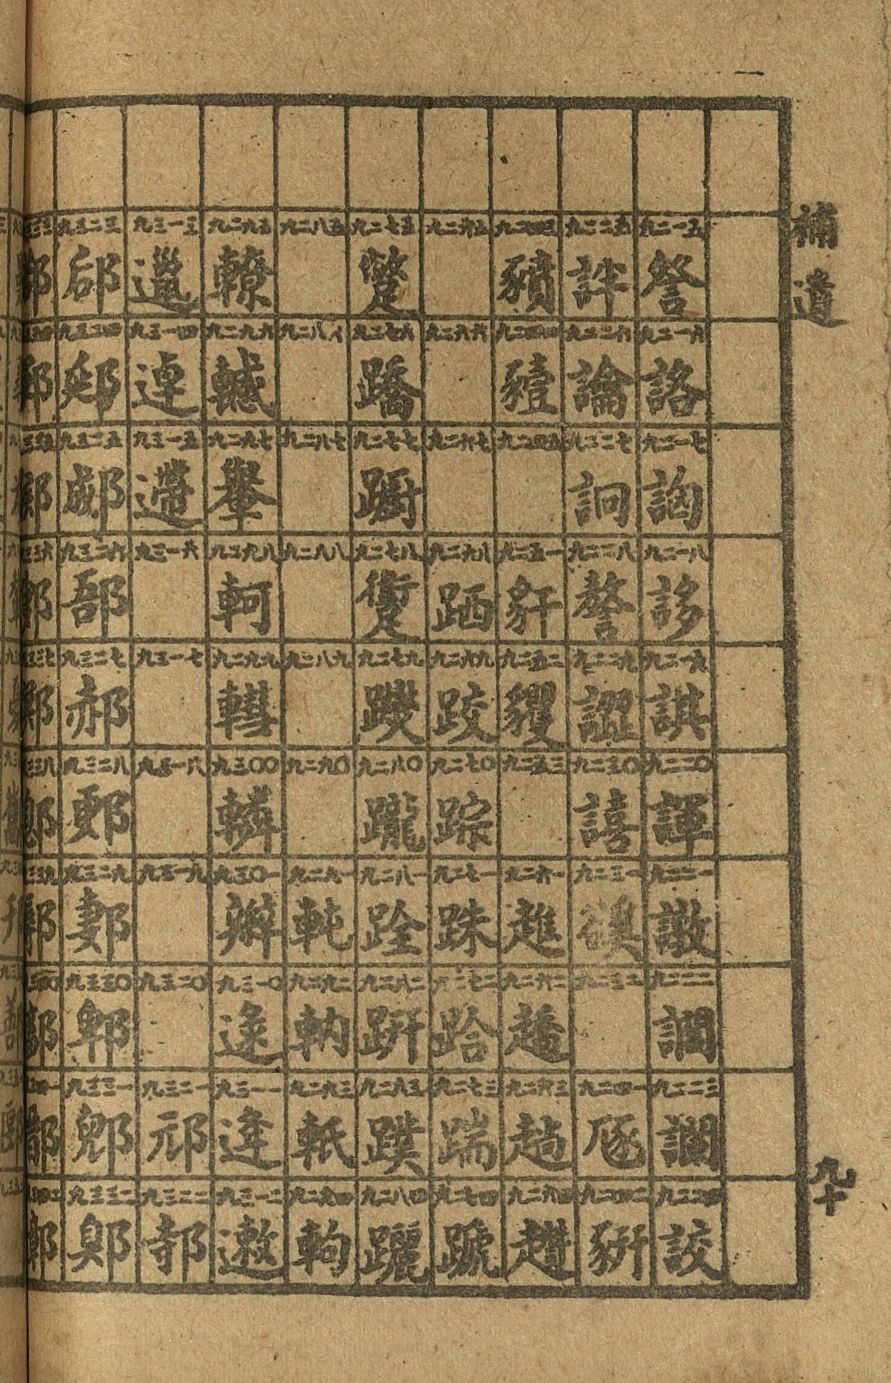 補遺
九二一五 詧 九二一六 詻 九二一七 詾 九二一八 誃 九二一九 諆 九二二〇 諢 九二二一 譈 九二二二 九二二三 讕 九二二四 詨
九二二五 詊 九二二六 論 九二二七 詗 九二二八 謷 九二二九 譅 九二三〇 譆 九二三一 九二三二 九二四一 豗 九二四二 豣
九二四三 豶 九二四四 豷 九二四五 九二五一 豻 九二五二 貜 九二五三 九二六一 趡 九二六二 趫 九二六三 九二六四 趲
九二六五 九二六六 九二六七 九二六八 跴 九二六九 跤 九二七〇 踪 九二七一 跦 九二七二 跲 九二七三 踹 九二七四 蹏
九二七五 蹩 九二七六 蹻 九二七七 九二七八 躗 九二七九 躞 九二八〇 躘 九二八一 跧 九二八二 趼 九二八三 蹼 九二八四 躧
九二八五 九二八六 九二八七 九二八八 九二八九 九二九〇 九二九一 軘 九二九二 軜 九二九三 軝 九二九四 軥
九二九五 轑 九二九六 轗 九二九七 轝 九二九八 軻 九二九九 轊 九三〇〇 轔 九三〇一 九三一〇 逯 九三一一 逄 九三一二 遬
九三一三 邋 九三一四 逴 九三一五 九三一六 九三一七 九三一八 九三一九 九三二〇 九三二一 邧 九三二二 邿
九三二三 郈 九三二四 郔 九三二五 郕 九三二六 郚 九三二七 郝 九三二八 郠 九三二九 郪 九三三〇 郫 九三三一 九三三二 郹
九十